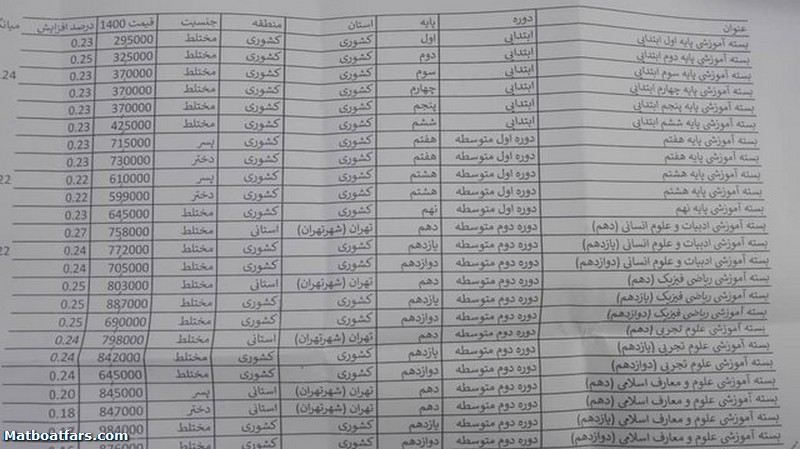 عنوان دوره پایه استان منطقه جنسیت قیمت 1400 درصد افزایش
بسته آموزشی پایه اول ابتدایی ابتدایی اول کشوری کشوری مختلط 295000 0.23
بسته آموزشی پایه دوم ابتدایی ابتدایی دوم کشوری کشوری مختلط 325000 0.25
بسته آموزشی پایه سوم ابتدایی ابتدایی سوم کشوری کشوری مختلط 370000 0.23
بسته آموزشی پایه چهارم ابتدایی ابتدایی چهارم کشوری کشوری مختلط 370000 0.23
بسته آموزشی پایه پنجم ابتدایی ابتدایی پنجم کشوری کشوری مختلط 370000 0.23
بسته آموزشی پایه ششم ابتدایی ابتدایی ششم کشوری کشوری مختلط 425000 0.23
بسته آموزشی پایه هفتم دوره اول متوسطه هفتم کشوری کشوری پسر 715000 0.23
بسته آموزشی پایه هفتم دوره اول متوسطه هفتم کشوری کشوری دختر 730000 0.23
بسته آموزشی پایه هشتم دوره اول متوسطه هشتم کشوری کشوری پسر 610000 0.22
بسته آموزشی پایه هشتم دوره اول متوسطه هشتم کشوری کشوری دختر 599000 0.22
بسته آموزشی پایه نهم دوره اول متوسطه نهم کشوری کشوری مختلط 645000 0.23
بسته آموزشی ادبیات و علوم انسانی (دهم) دوره دوم متوسطه دهم تهران (شهرتهران) استانی مختلط 758000 0.27
بسته آموزشی ادبیات و علوم انسانی (یازدهم) دوره دوم متوسطه یازدهم کشوری کشوری مختلط 772000 0.24
بسته آموزشی ادبیات و علوم انسانی (دوازدهم) دوره دوم متوسطه دوازدهم کشوری کشوری مختلط 705000 0.24
بسته آموزشی ریاضی فیزیک (دهم) دوره دوم متوسطه دهم تهران (شهرتهران) استانی مختلط 803000 0.25
بسته آموزشی ریاضی فیزیک (یازدهم) دوره دوم متوسطه یازدهم کشوری کشوری مختلط 887000 0.25
بسته آموزشی ریاضی فیزیک (دوازدهم) دوره دوم متوسطه دوازدهم کشوری کشوری مختلط 690000 0.25
بسته آموزشی علوم تجربی (دهم) دوره دوم متوسطه دهم تهران (شهرتهران) استانی مختلط 798000 0.24
بسته آموزشی علوم تجربی (یازدهم) دوره دوم متوسطه یازدهم کشوری کشوری مختلط 842000 0.24
بسته آموزشی علوم تجربی (دوازدهم) دوره دوم متوسطه دوازدهم کشوری کشوری مختلط 645000 0.24
بسته آموزشی علوم و معارف اسلامی (دهم) دوره دوم متوسطه دهم تهران (شهرتهران) استانی پسر 845000 0.20
بسته آموزشی علوم و معارف اسلامی (دهم) دوره دوم متوسطه دهم تهران (شهرتهران) استانی دختر 847000 0.18
بسته آموزشی علوم و معارف اسلامی (یازدهم) دوره دوم متوسطه یازدهم کشوری کشوری مختلط 984000
بسته آموزشی علوم و معارف اسلامی (دوازدهم) دوره دوم متوسطه دوازدهم کشوری کشوری مختلط
Matboatfars.com